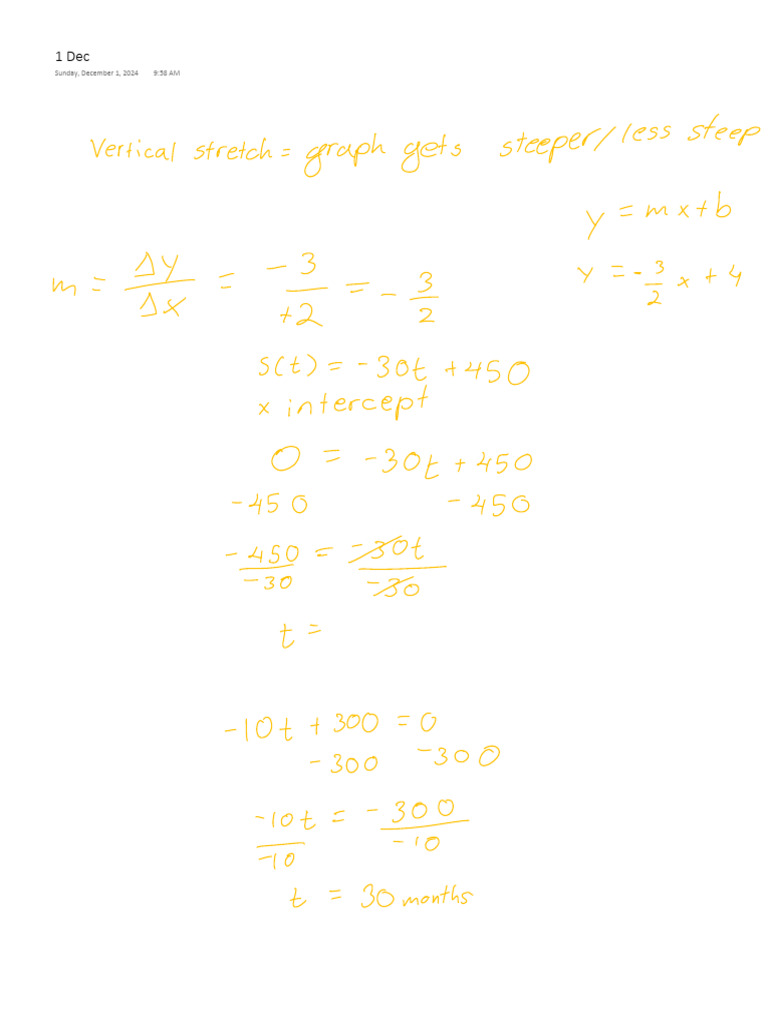 1 Dec
Sunday, December 1, 2024 9:38 AM
Vertical stretch = graph gets steeper/less steep
y = mx+b
m = Δy/Δx = -3/+2 = -3/2
y = -3/2 x + 4
s(t) = -30t +450
x intercept
0 = -30t + 450
-450 -450
-450/-30 = -30t/-30
t =
-10t + 300 = 0
-300 -300
-10t/-10 = -300/-10
t = 30 months